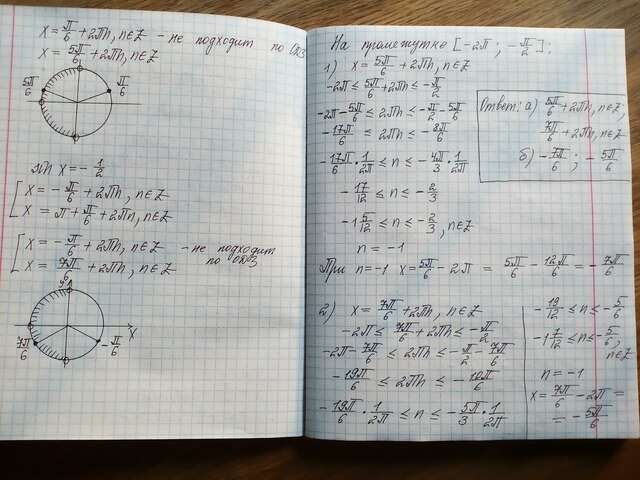 x = π/6 + 2πn, n∈Z - не подходит по ОДЗ
x = 5π/6 + 2πn, n∈Z
5π/6
π/6
sin x = - 1/2
[ x = - π/6 + 2πn, n∈Z
x = π + π/6 + 2πn, n∈Z
[ x = - π/6 + 2πn, n∈Z - не подходит по ОДЗ
x = 7π/6 + 2πn, n∈Z
y
x
7π/6
- π/6
На промежутке [-2π ; - π/2]:
1) x = 5π/6 + 2πn, n∈Z
-2π ≤ 5π/6 + 2πn ≤ - π/2
-2π - 5π/6 ≤ 2πn ≤ - π/2 - 5π/6
- 17π/6 ≤ 2πn ≤ - 8π/6
- 17π/6 · 1/2π ≤ n ≤ - 4π/3 · 1/2π
- 17/12 ≤ n ≤ - 2/3
-1 5/12 ≤ n ≤ - 2/3, n∈Z
n = -1
При n = -1 x = 5π/6 - 2π = 5π/6 - 12π/6 = - 7π/6
Ответ: а) 5π/6 + 2πn, n∈Z,
7π/6 + 2πn, n∈Z
б) - 7π/6 ; - 5π/6
2) x = 7π/6 + 2πn, n∈Z
-2π ≤ 7π/6 + 2πn ≤ - π/2
-2π - 7π/6 ≤ 2πn ≤ - π/2 - 7π/6
- 19π/6 ≤ 2πn ≤ - 10π/6
- 19π/6 · 1/2π ≤ n ≤ - 5π/3 · 1/2π
- 19/12 ≤ n ≤ - 5/6
-1 7/12 ≤ n ≤ - 5/6, n∈Z
n = -1
x = 7π/6 - 2π =
= - 5π/6